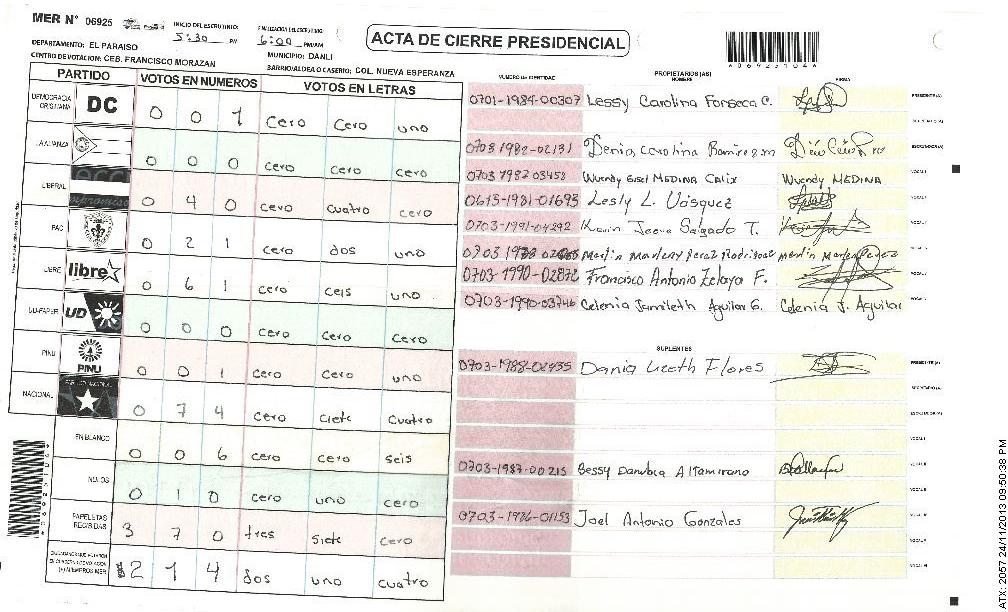 MER N° 06925
INICIO DEL ESCRUTINIO:
5:30 PM
6:00 PM/AM
ACTA DE CIERRE PRESIDENCIAL
DEPARTAMENTO: EL PARAISO
MUNICIPIO: DANLI
CENTRO DE VOTACION: CEB. FRANCISCO MORAZAN
BARRIO/ALDEA O CASERIO: COL. NUEVA ESPERANZA
PARTIDO VOTOS EN NUMEROS VOTOS EN LETRAS
DEMOCRACIA CRISTIANA DC 0 0 1 cero cero uno
LA ALIANZA 0 0 0 cero cero cero
LIBERAL 0 4 0 cero cuatro cero
PAC 0 2 1 cero dos uno
LIBRE libre 0 6 1 cero ceis uno
UD-FAPER UD 0 0 0 cero cero cero
PINU PINU 0 0 1 cero cero uno
NACIONAL 0 7 4 cero ciete cuatro
EN BLANCO 0 0 6 cero cero seis
NULOS 0 1 0 cero uno cero
PAPELETAS RECIBIDAS 3 7 0 tres siete cero
2 1 4 dos uno cuatro
NUMERO DE IDENTIDAD PROPIETARIOS (AS) NOMBRE FIRMA
0701-1984-00307 Lessy Carolina Fonseca C. PRESIDENTE (A)
SECRETARIO (A)
0703 1982-02131 Denia Carolina Ramirez m ESCRUTADOR (A)
0703 1987 03458 Wuendy Gisel MEDINA Calix Wuendy MEDINA VOCAL I
0615-1981-01693 Lesly L. Vásquez
0703-1991-04292 Karin Salgado T.
0703 1988 Merlin Marleny Perez Rodriguez
0703-1990-02872 Francisco Antonio Zelaya F.
0703-1990-03746 Celenia Jamileth Aguilar G. Celenia J. Aguilar
SUPLENTES
0703-1988-02435 Dania Lizeth Flores PRESIDENTE (A)
SECRETARIO (A)
ESCRUTADOR (A)
VOCAL I
0703-1987-00215 Bessy Danubia Altamirano
0703-1986-01153 Joel Antonio Gonzales
ATX: 2057 24/11/2013 09:50:38 PM